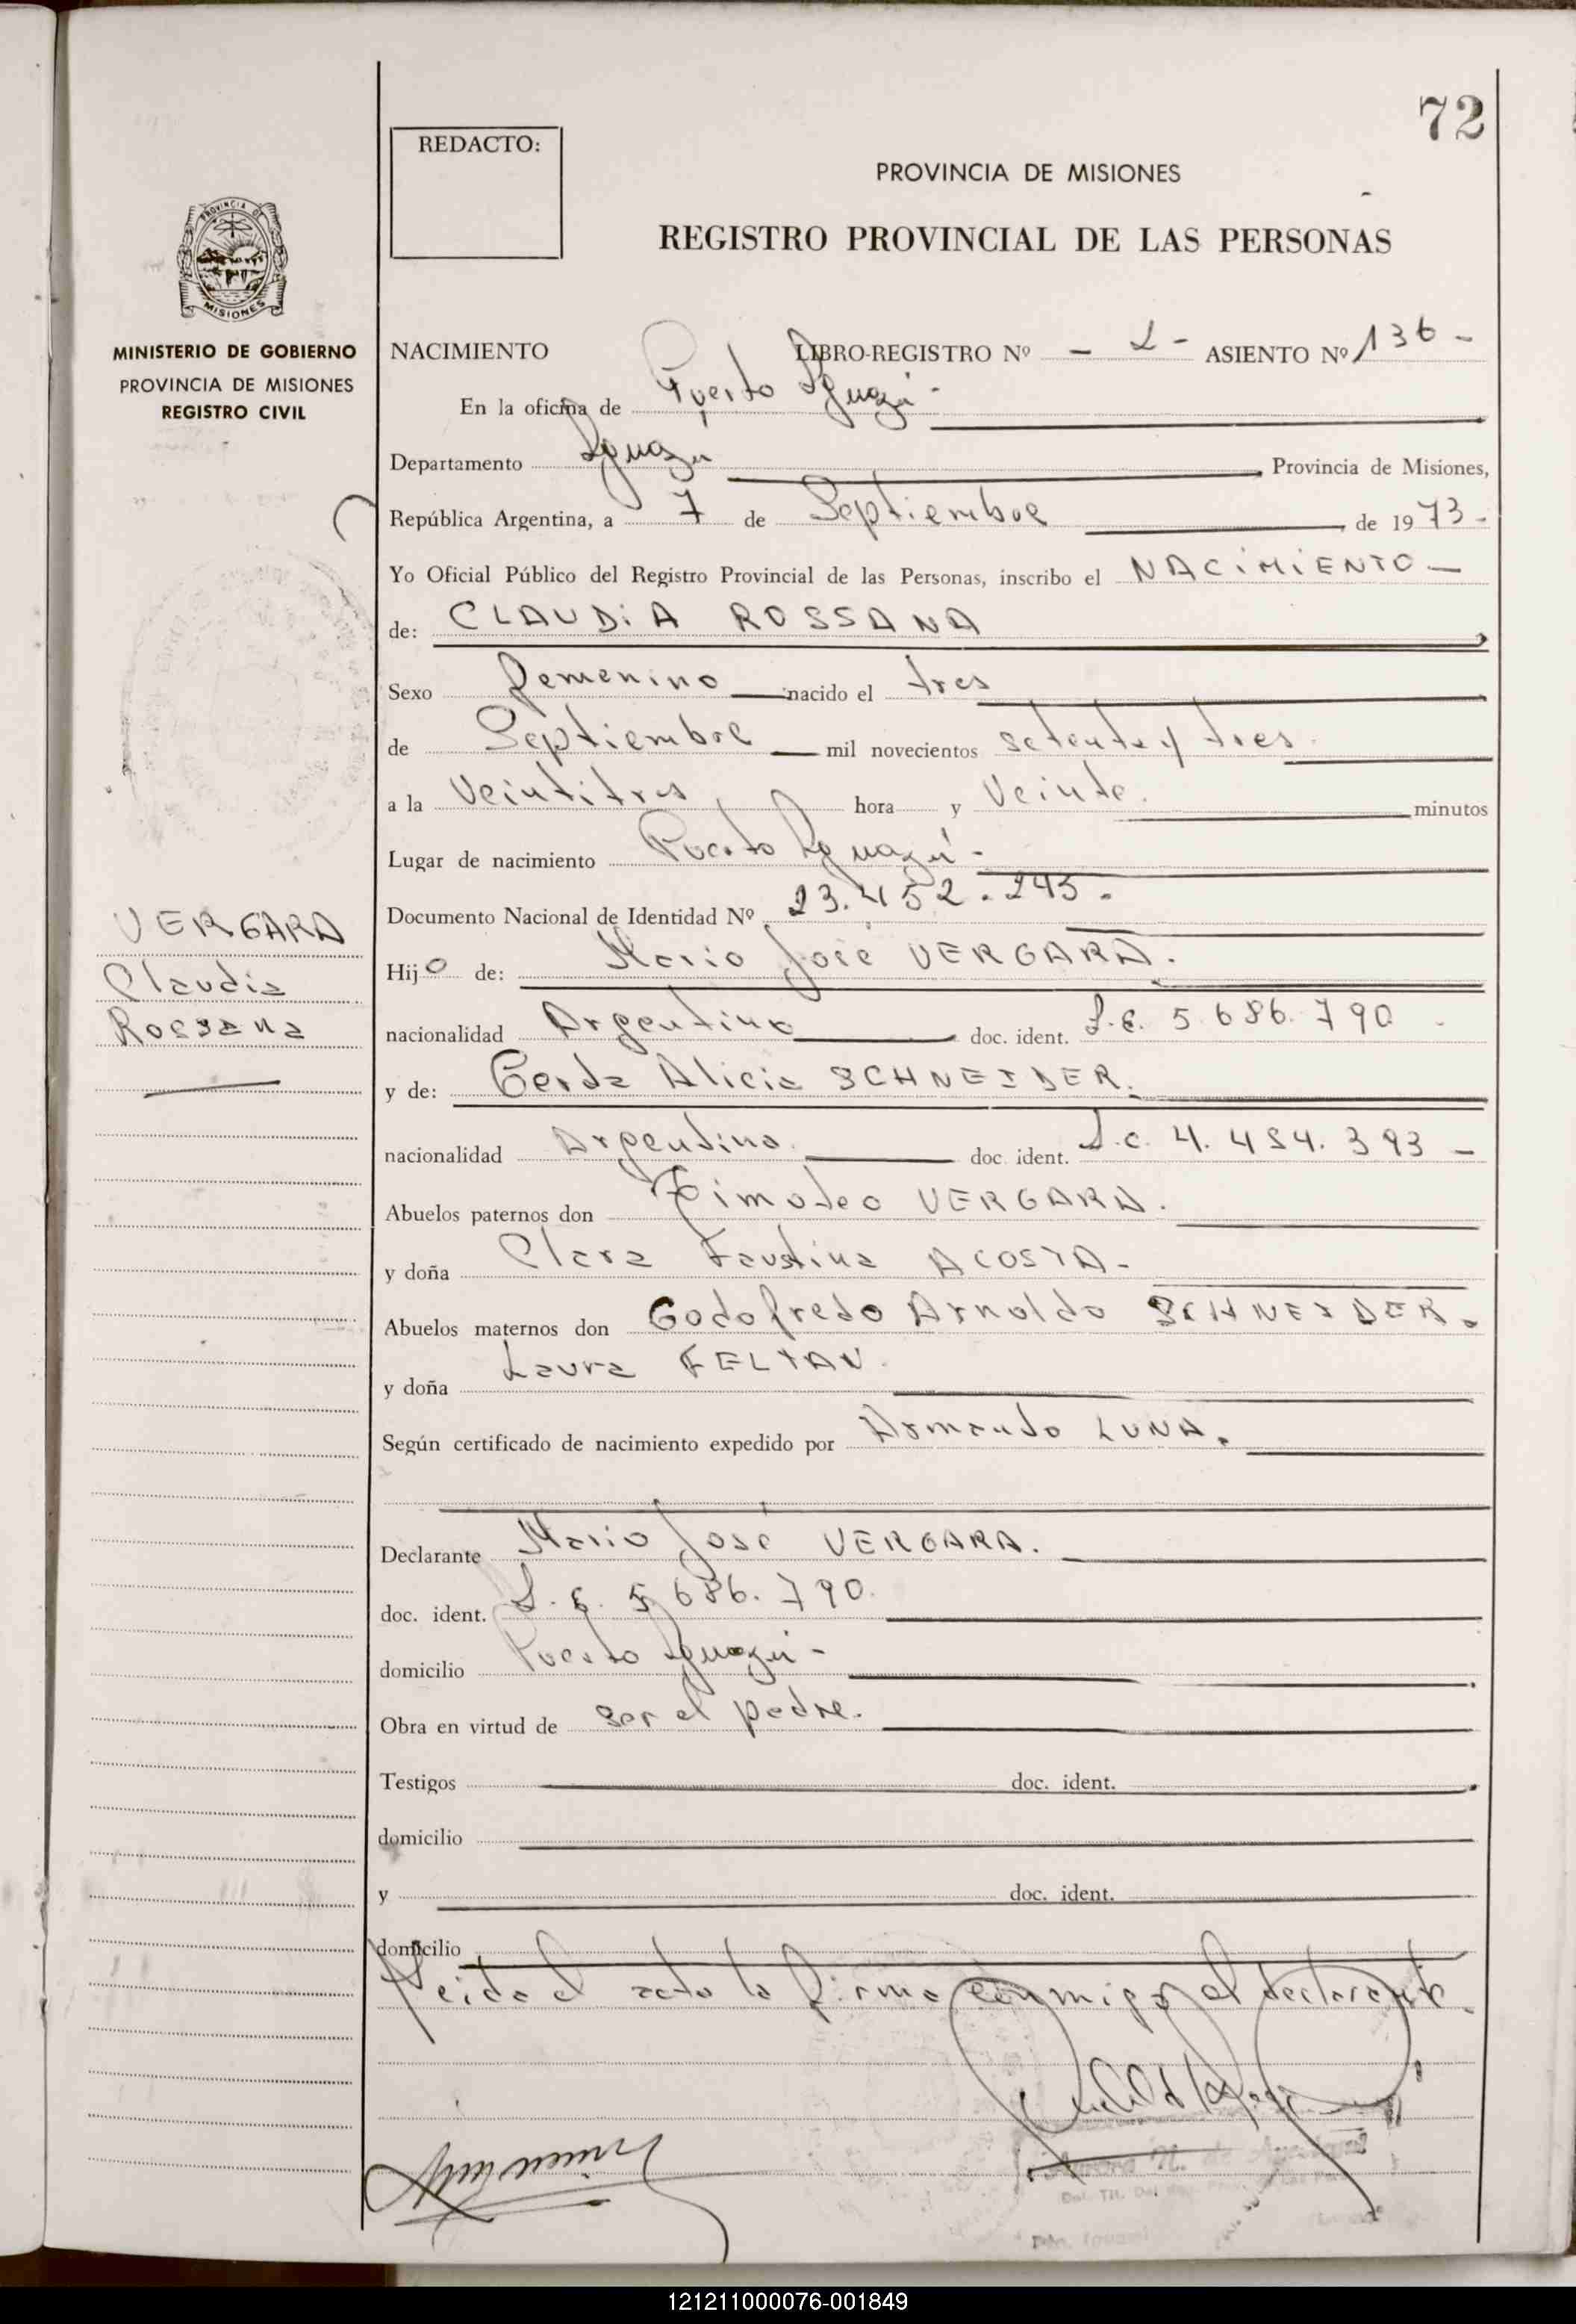 72
REDACTO:
PROVINCIA DE MISIONES
REGISTRO PROVINCIAL DE LAS PERSONAS
PROVINCIA DE
MISIONES
MINISTERIO DE GOBIERNO
PROVINCIA DE MISIONES
REGISTRO CIVIL
NACIMIENTO LIBRO-REGISTRO Nº - 2 - ASIENTO Nº 136 -
En la oficina de Puerto Iguazú -
Departamento Iguazú Provincia de Misiones,
República Argentina, a 7 de Septiembre de 1973.
Yo Oficial Público del Registro Provincial de las Personas, inscribo el NACIMIENTO -
de: CLAUDIA ROSSANA
Sexo femenino nacido el tres
de Septiembre mil novecientos setenta y tres.
a la Veintitres hora y Veinte. minutos
Lugar de nacimiento Puerto Iguazú -
Documento Nacional de Identidad Nº 23.452.245.
VERGARA
Claudia
Rossana
Hijo de: Mario José VERGARA.
nacionalidad Argentino doc. ident. L.E. 5.686.790
y de: Gerda Alicia SCHNEIDER.
nacionalidad Argentina. doc. ident. L.C. 4.484.393 -
Abuelos paternos don Timoteo VERGARA.
y doña Clara Faustina ACOSTA -
Abuelos maternos don Godofredo Arnoldo SCHNEIDER.
y doña Laura FELTAN.
Según certificado de nacimiento expedido por Armando LUNA.
Declarante Mario José VERGARA.
doc. ident. L.E. 5.686.790.
domicilio Puerto Iguazú -
Obra en virtud de ser el padre.
Testigos doc. ident.
domicilio
y doc. ident.
domicilio
Leida el acta la firma conmigo el declarante.
121211000076-001849